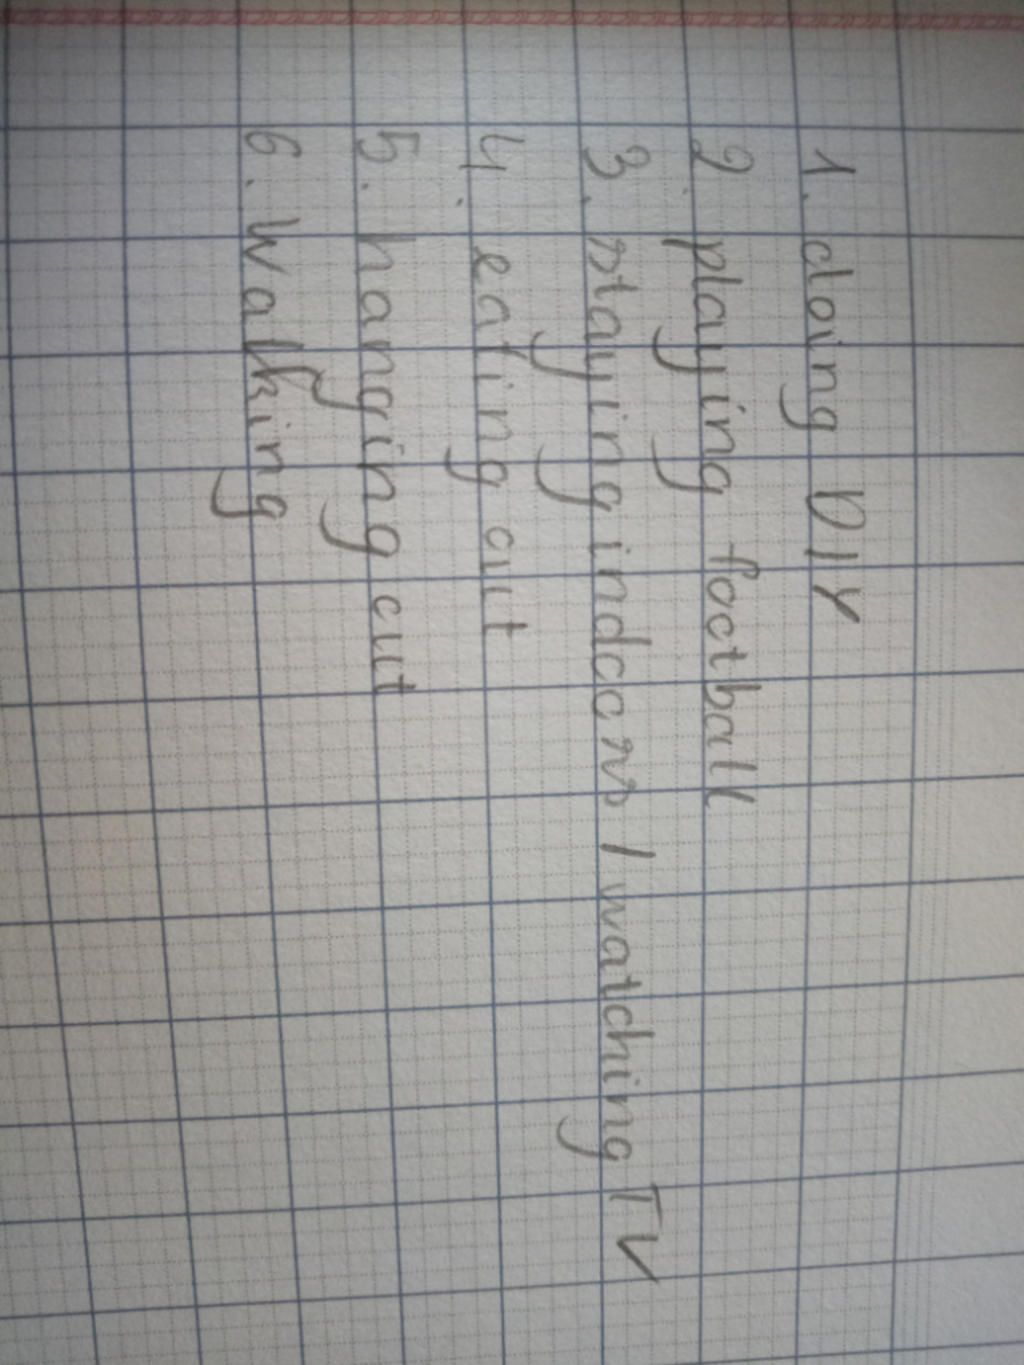 1. doing DIY
2. playing football
3. staying indoors / watching TV
4. eating out
5. hanging out
6. walking